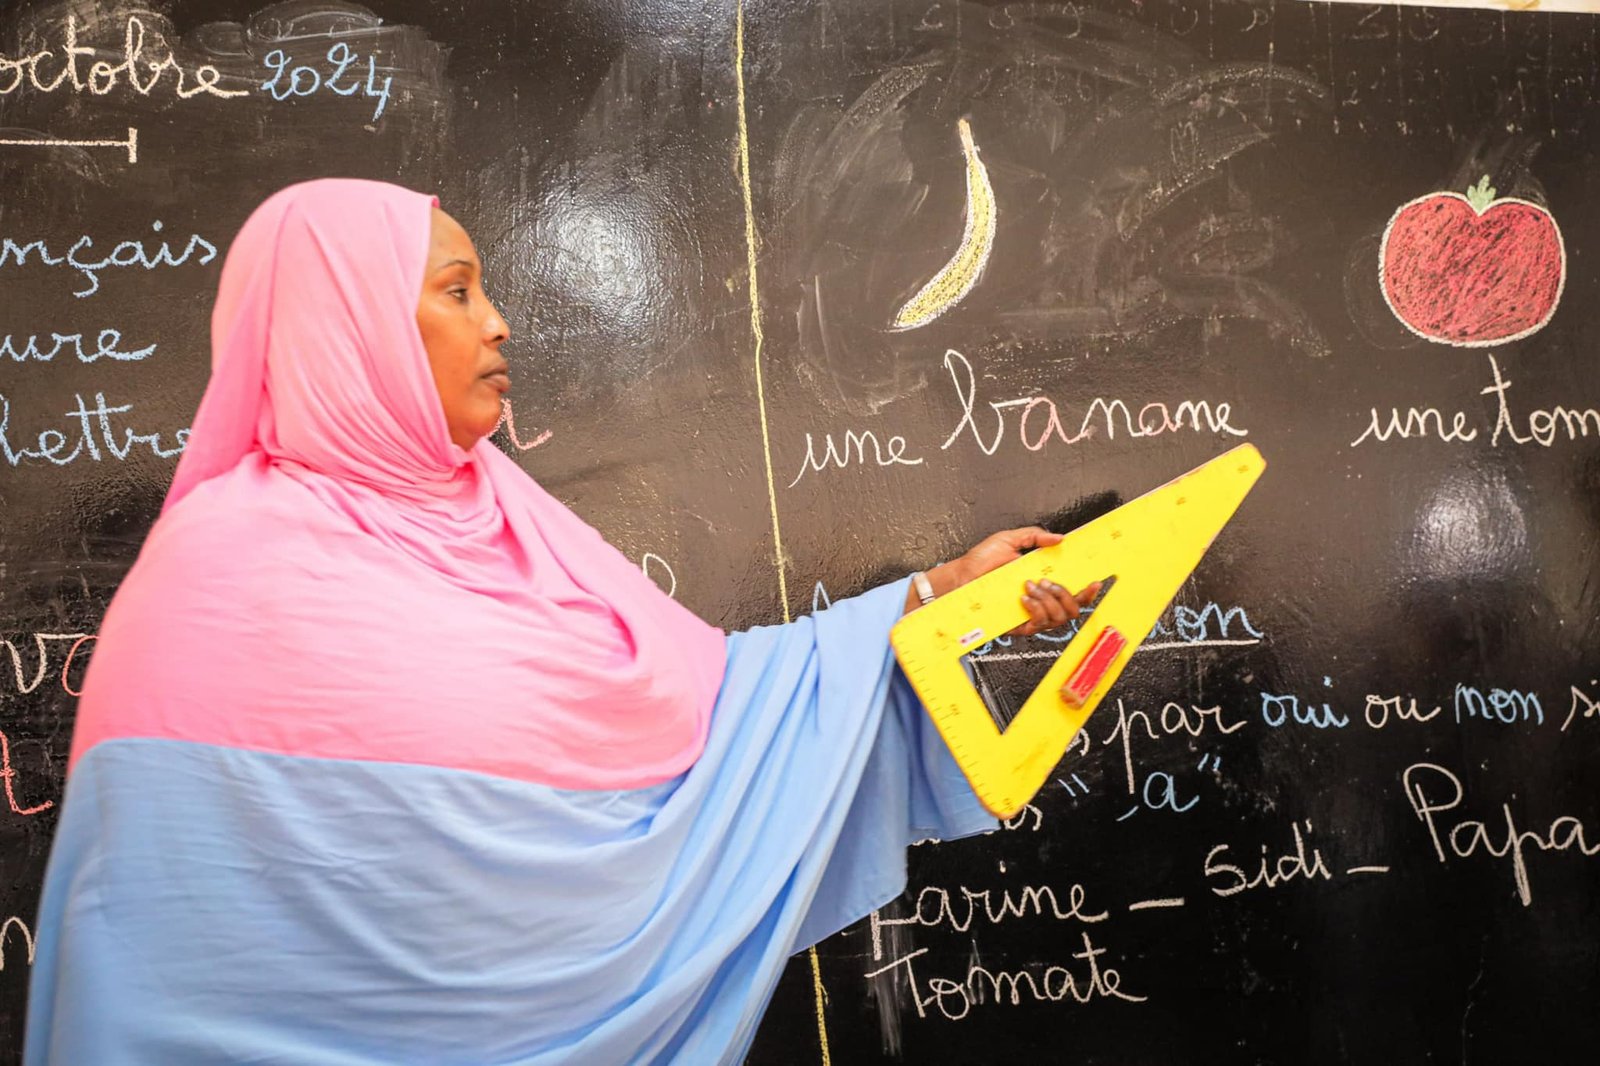 octobre 2024
nçais
ure
lettre a
une banane
une tom
par oui ou non si
"a"
Farine - Sidi - Papa
Tomate